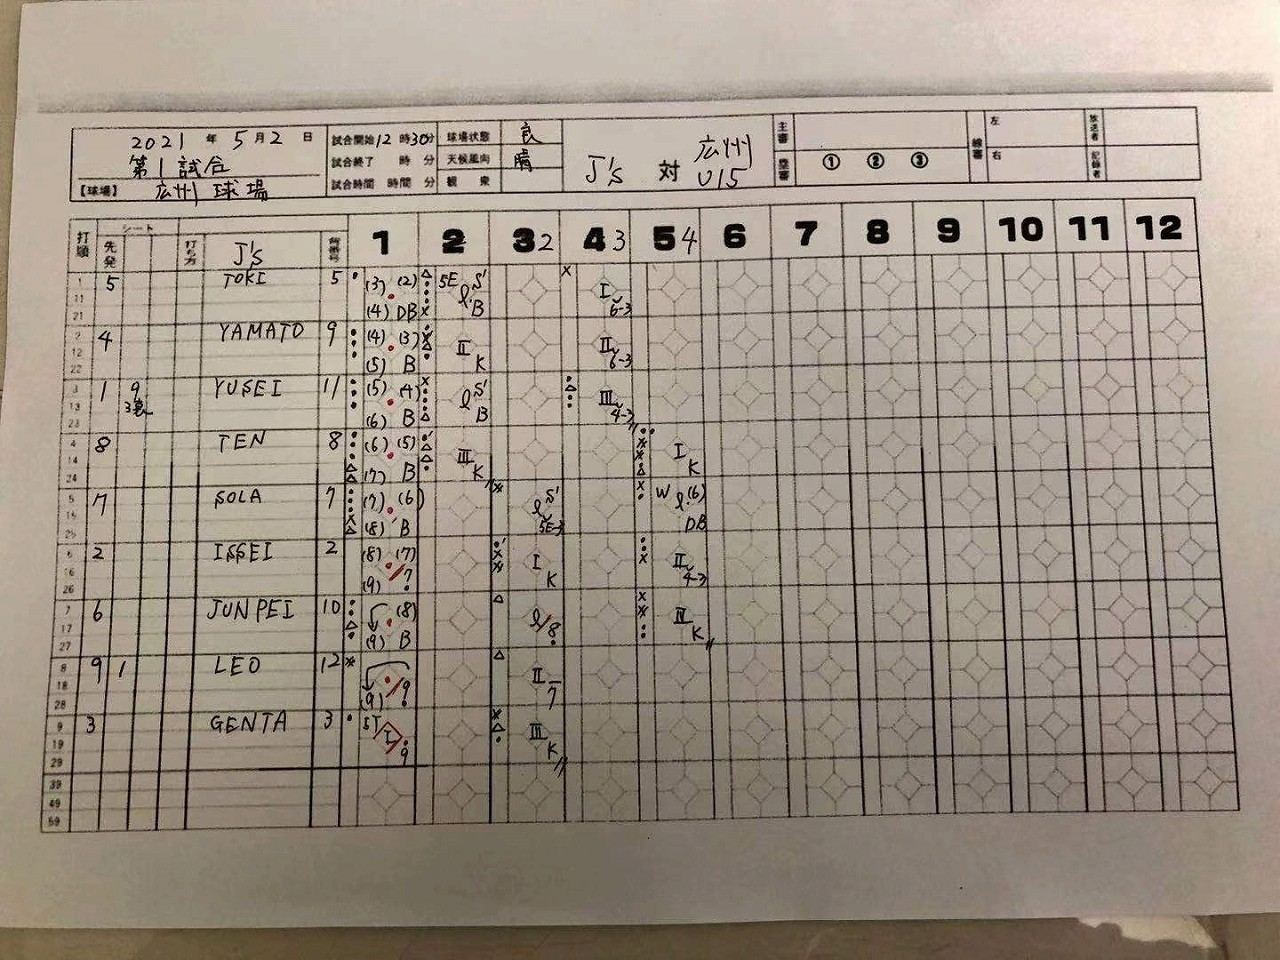 2021 年 5 月 2 日
試合開始 12 時 30 分
球場状態 良
J's 対 広州 U15
主審
塁審 ① ② ③
線審 左 右
放送者
記録者
第1試合
試合終了 時 分
天候風向 晴
【球場】 広州 球場
試合時間 時間 分
観衆
打順 先発 シート 打ち方 J's 背番号 1 2 3 2 4 3 5 4 6 7 8 9 10 11 12
1 11 21 5 TOKI 5 (3) (2) (4) DB 5E S' B I 6-3
2 12 22 4 YAMATO 9 (4) (3) (5) B II K II 6-3
3 13 23 1 9 YUSEI 11 (5) (4) (6) B S' B III 4-3
4 14 24 8 TEN 8 (6) (5) (7) B III K I K
5 15 25 7 SOLA 7 (7) (6) (8) B S' 5E-3 W (6) DB
6 16 26 2 ISSEI 2 (8) (7) (9) 7 I K II 4-3
7 17 27 6 JUNPEI 10 (8) (9) B 8 III K
8 18 28 9 1 LEO 12 (9) 9 II 7
9 19 29 3 GENTA 3 ST I 9 III K
39 49 59